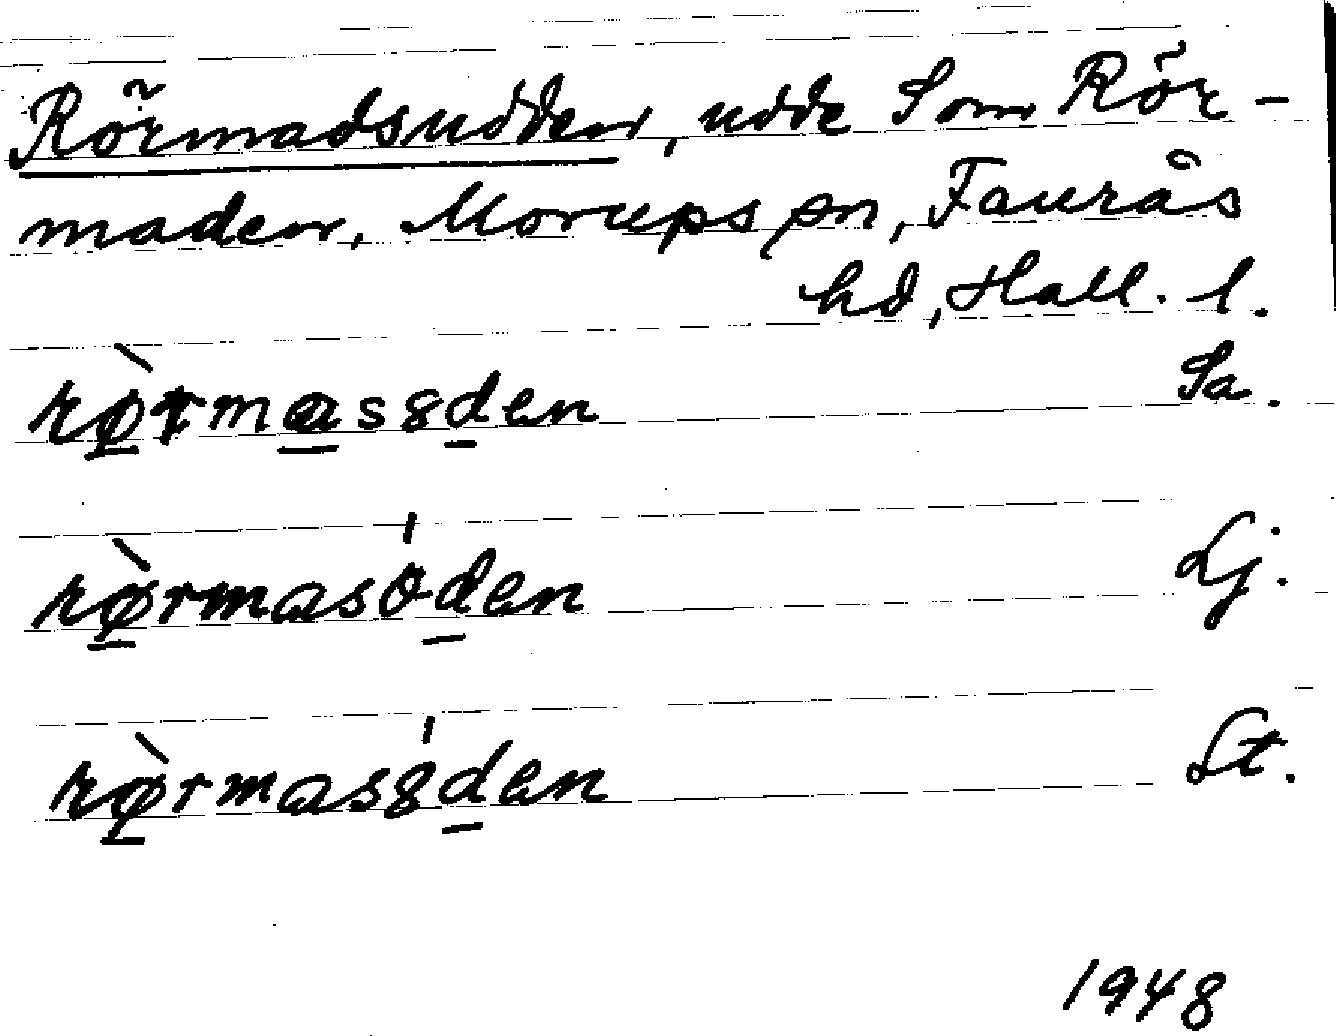 Rörmadsudden, udde Som Rör-
maden, Morups sn, Faurås
hd, Hall. l.
rørmas8den Sa.
rørmasöden Lj.
rørmas8den St.
1948